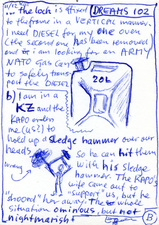 11/12 ... the loch is fixed DREAMS 102
to the frame in a VERTICAL manner.
I need DIESEL for my one oven
(the second one has been removed
and to I am looking for an ARMY
NATO Gas can
to safely trans
port the DIESEL
20L
b) I am in a
KZ and the
KAPO orders
me (us?) to
hold up a sledge hammer over our
heads
so he can hit them
with his sledge
hammer. The KAPO's
wife came out to
"support" us, but he
"shooed" her away. The whole
situation ominous, but not
nightmarish!